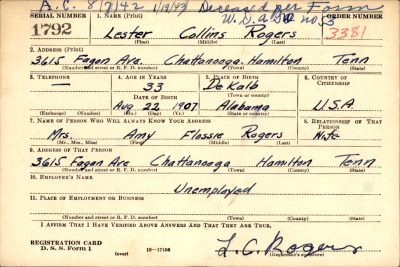 A.C. 8/7/42 1/19/43 Deceased per Form
W.D. AGO no. 53
SERIAL NUMBER 1. NAME (Print) ORDER NUMBER
1792 Lester Collins Rogers 3381
(First) (Middle) (Last)
2. ADDRESS (Print)
3615 Fagan Ave. Chattanooga. Hamilton Tenn
(Number and street or R. F. D. number) (Town) (County) (State)
3. TELEPHONE 4. AGE IN YEARS 5. PLACE OF BIRTH 6. COUNTRY OF CITIZENSHIP
— 33 De Kalb
DATE OF BIRTH (Town or county)
Aug 22 1907 Alabama U.S.A.
(Exchange) (Number) (Mo.) (Day) (Yr.) (State or country)
7. NAME OF PERSON WHO WILL ALWAYS KNOW YOUR ADDRESS 8. RELATIONSHIP OF THAT PERSON
Mrs. Amy Flossie Rogers Wife
(Mr., Mrs., Miss) (First) (Middle) (Last)
9. ADDRESS OF THAT PERSON
3615 Fagan Ave Chattanooga Hamilton Tenn
(Number and street or R. F. D. number) (Town) (County) (State)
10. EMPLOYER'S NAME
Unemployed
11. PLACE OF EMPLOYMENT OR BUSINESS
(Number and street or R. F. D. number) (Town) (County) (State)
I AFFIRM THAT I HAVE VERIFIED ABOVE ANSWERS AND THAT THEY ARE TRUE.
REGISTRATION CARD
D. S. S. Form 1 (over) 16—17105 L. C. Rogers
(Registrant's signature)